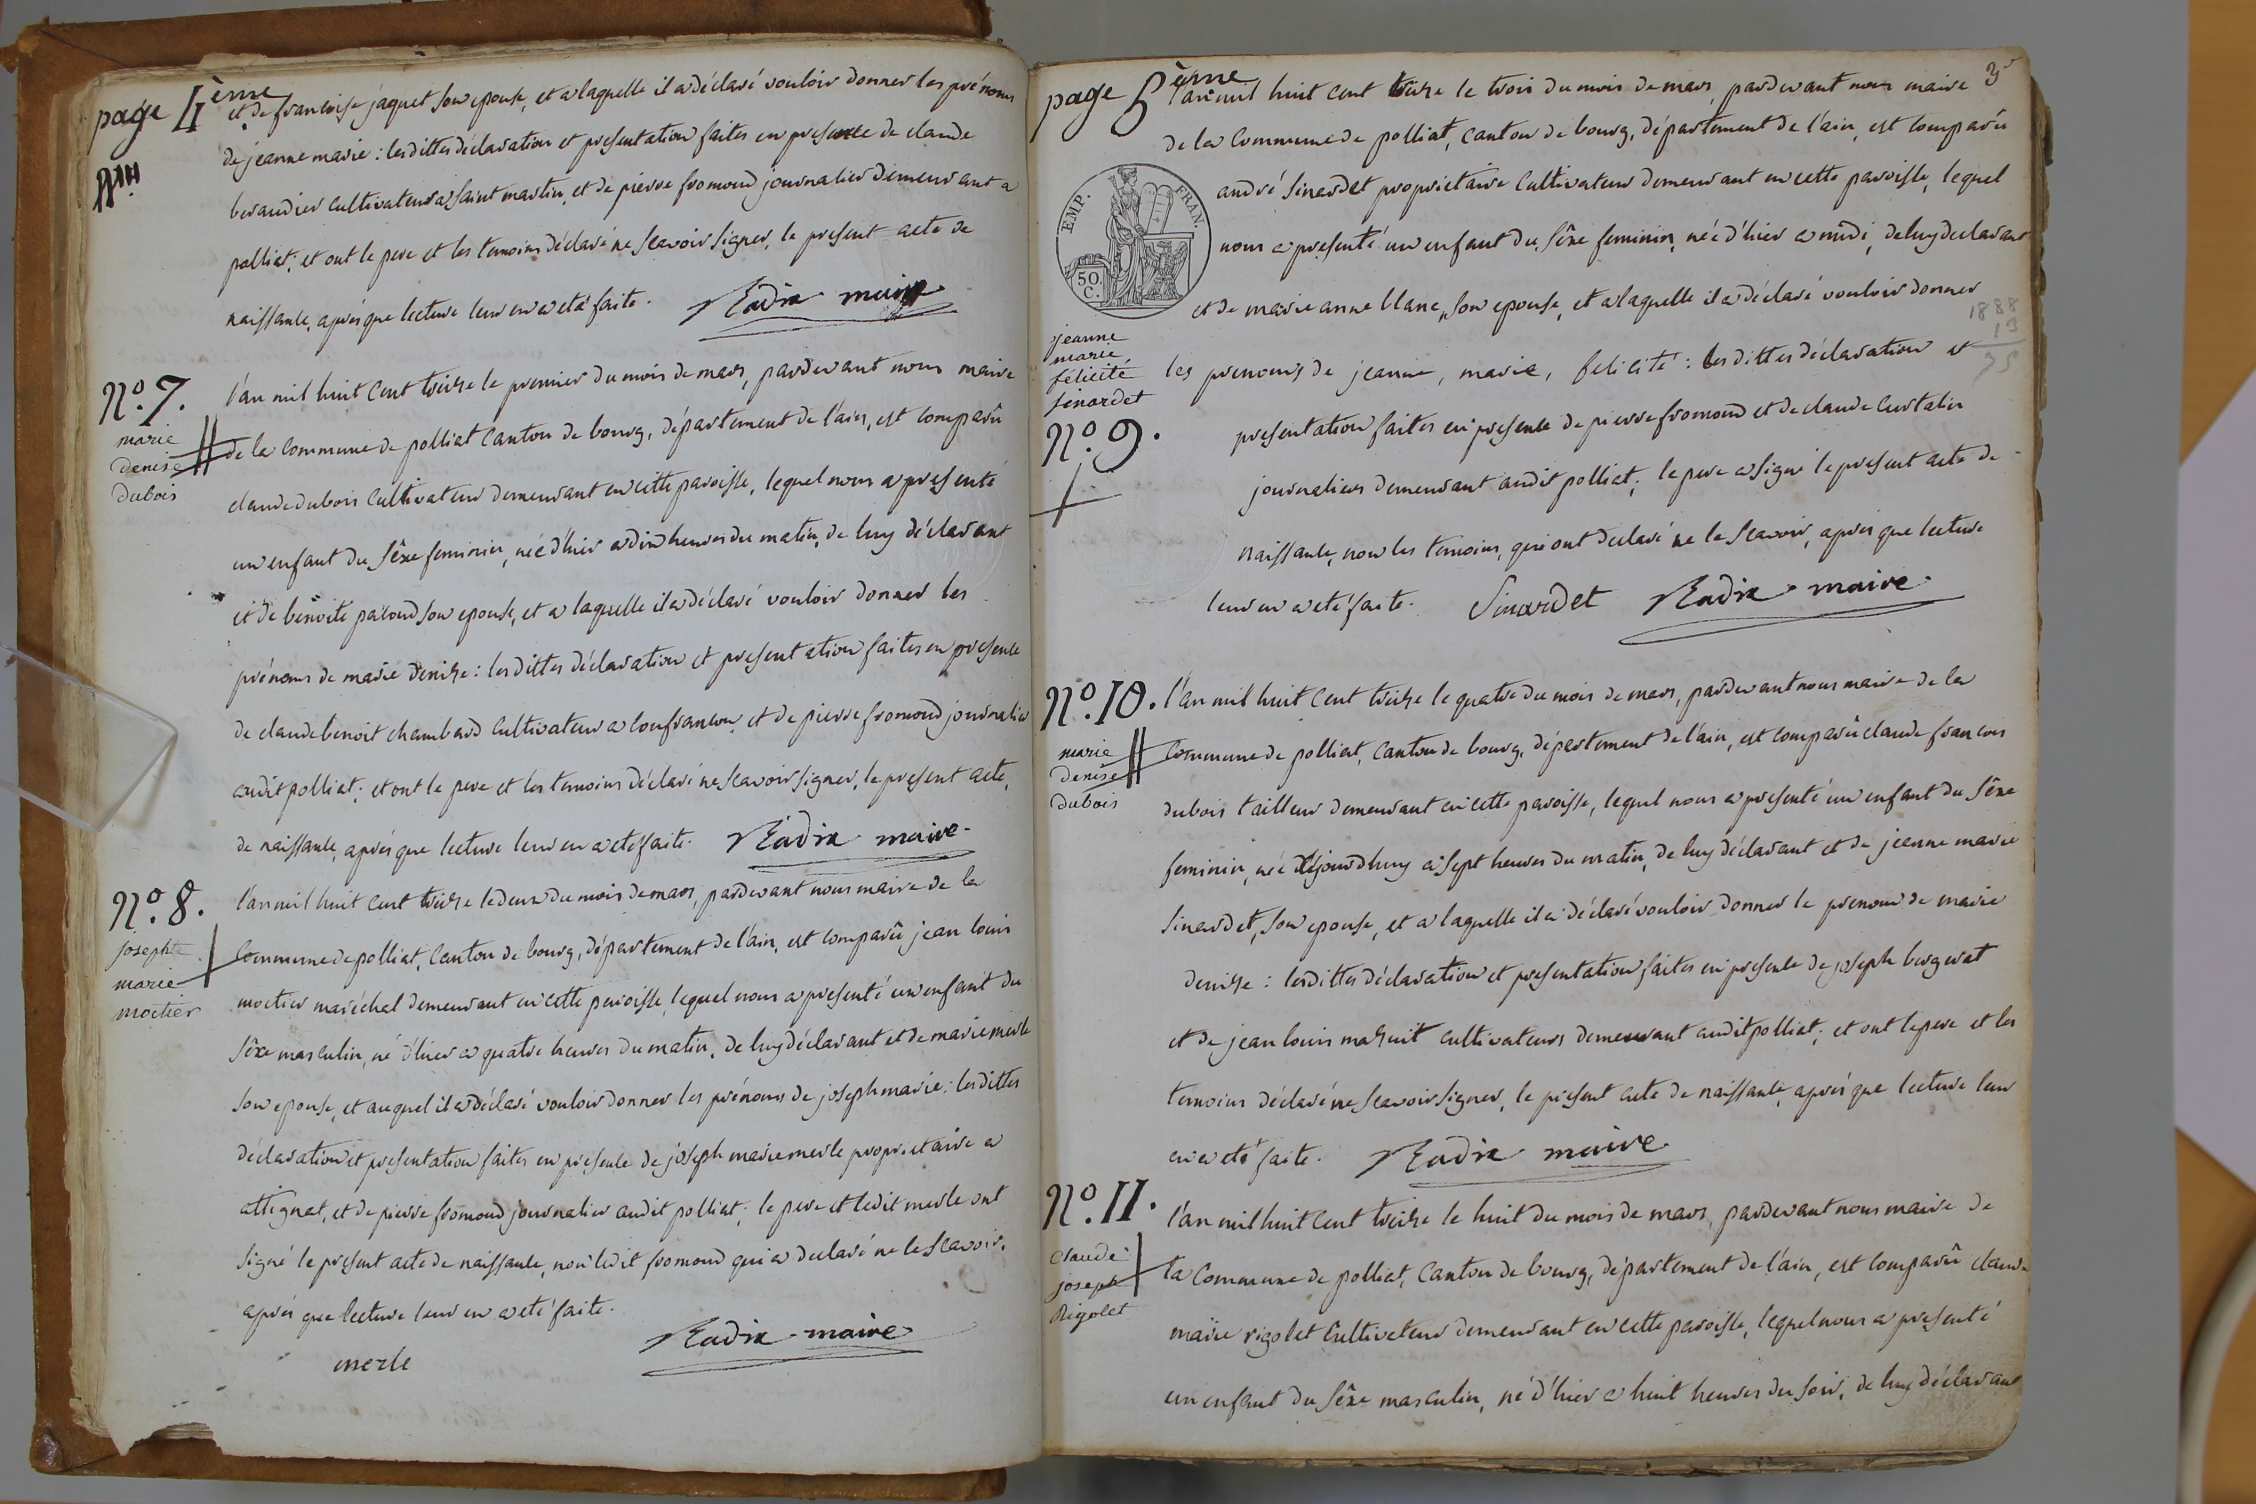 page 4ème
et de francoise jaquet son epouse, et a laquelle il a déclaré vouloir donner les prénoms
de jeanne marie : lesdittes déclaration et presentation faites en presence de claude
beraudier cultivateur a saint martin, et de pierre fromond journalier demeurant a
polliat; et ont le pere et les temoins déclaré ne scavoir signer, le present acte de
naissance, après que lecture leur en a eté faite. Nadix maire
N.º 7.
marie
denise
dubois
l'an mil huit cent treize le premier du mois de mars, pardevant nous maire
de la commune de polliat canton de bourg, département de l'ain, est comparû
claude dubois cultivateur demeurant en cette paroisse, lequel nous a presenté
un enfant du sêxe feminin, née d'hier a dix heures du matin, de luy déclarant
et de benoite pacoud son epouse, et a laquelle il a déclaré vouloir donner les
prénoms de marie denize : lesdittes déclaration et presentation faites en presence
de claude benoit chambard cultivateur a confrancon, et de pierre fromond journalier
audit polliat; et ont le pere et les temoins déclaré ne scavoir signer, le present acte,
de naissance, après que lecture leur en a eté faite. Nadix maire.
N.º 8.
joseph
marie
moctier
l'an mil huit cent treize le deux du mois de mars, pardevant nous maire de la
commune de polliat, canton de bourg, département de l'ain, est comparû jean louis
moctier maréchal demeurant en cette paroisse, lequel nous a presenté un enfant du
sêxe masculin, né d'hier a quatre heures du matin, de luy déclarant et de marie merle
son epouse, et auquel il a déclaré vouloir donner les prénoms de joseph marie : lesdittes
déclaration et presentation faites en presence de joseph marie merle proprietaire a
attignat, et de pierre fromond journalier audit polliat; le pere et ledit merle ont
signé le present acte de naissance, non ledit fromond qui a declaré ne le scavoir,
après que lecture leur en a eté faite.
merle Nadix maire
page 5ème
3
l'an mil huit cent treize le trois du mois de mars, pardevant nous maire
de la commune de polliat, canton de bourg, département de l'ain, est comparû
EMP. FRAN.
50 C.
andré sinardet proprietaire cultivateur demeurant en cette paroisse, lequel
nous a presenté un enfant du sêxe feminin, née d'hier a midi, de luy declarant
et de marie anne blanc, son epouse, et a laquelle il a déclaré vouloir donner
1888
13
75
jeanne
marie
félicité
sinardet
N.º 9.
les prenoms de jeanne, marie, félicité : lesdittes déclaration et
presentation faites en presence de pierre fromond et de claude curtalin
journaliers demeurant audit polliat; le pere a signé le present acte de
naissance, non les temoins, qui ont declaré ne le scavoir, après que lecture
leur en a eté faite. Sinardet Nadix maire.
N.º 10.
marie
denise
dubois
l'an mil huit cent treize le quatre du mois de mars, pardevant nous maire de la
commune de polliat, canton de bourg, département de l'ain, est comparû claude francois
dubois tailleur demeurant en cette paroisse, lequel nous a presenté un enfant du sêxe
feminin, née dejourdhuy a sept heures du matin, de luy déclarant et de jeanne marie
sinardet, son epouse, et a laquelle il a déclaré vouloir donner le prenom de marie
denize : lesdittes déclaration et presentation faites en presence de joseph bergerat
et de jean louis mazuit cultivateurs demeurant audit polliat; et ont le pere et les
temoins déclaré ne scavoir signer, le present acte de naissance, après que lecture leur
en a eté faite. Nadix maire
N.º 11.
claude
joseph
Rigolet
l'an mil huit cent treize le huit du mois de mars, pardevant nous maire de
la commune de polliat, canton de bourg, département de l'ain, est comparû claude
marie rigolet cultivateur demeurant en cette paroisse, lequel nous a presenté
un enfant du sêxe masculin, né d'hier a huit heures du soir, de luy déclarant